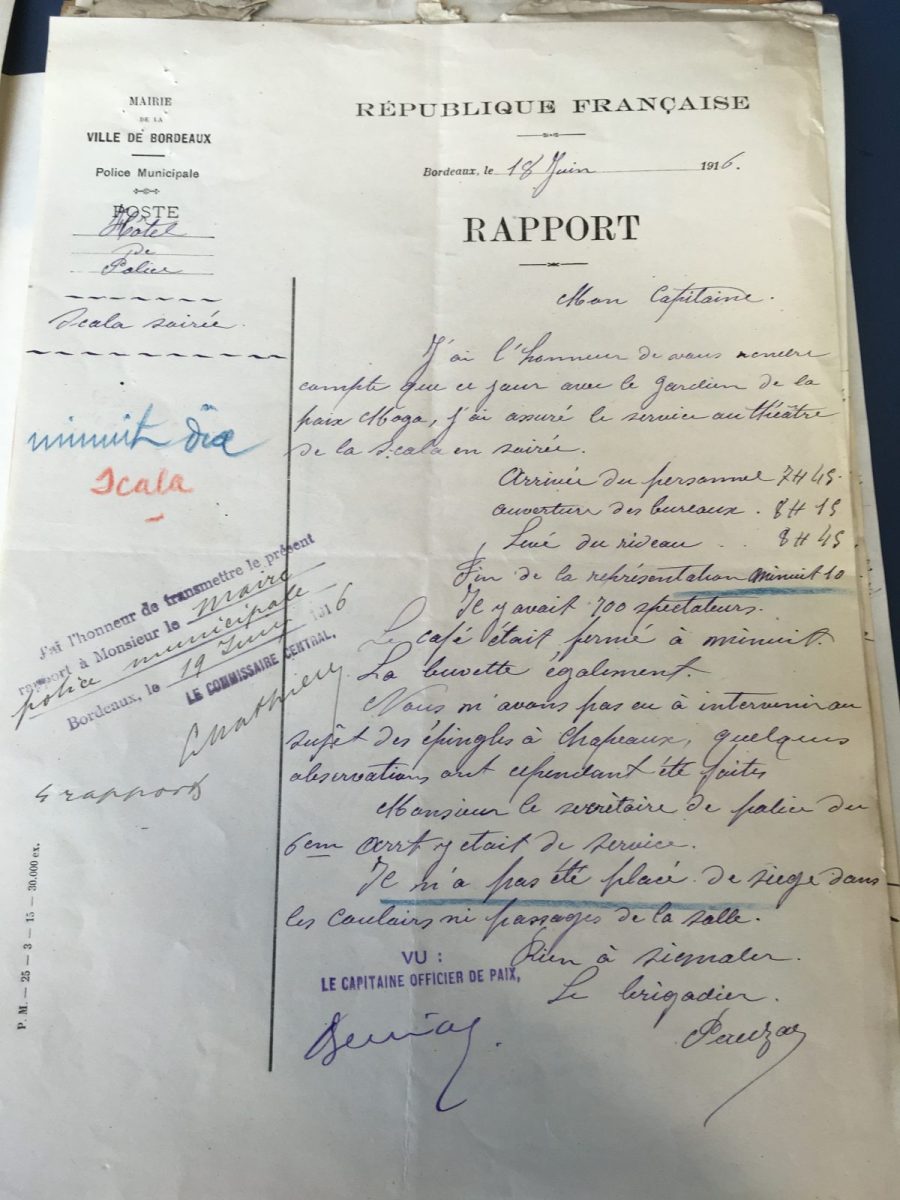 MAIRIE
DE LA
VILLE DE BORDEAUX
Police Municipale
POSTE
Hôtel
de
Police
Scala soirée.
minuit dix
Scala
J'ai l'honneur de transmettre le présent
rapport à Monsieur le Maire
police municipale
Bordeaux, le 19 Juin 1916
LE COMMISSAIRE CENTRAL,
4 rapports
P. M. — 25 — 3 — 15 — 30.000 ex.
RÉPUBLIQUE FRANÇAISE
Bordeaux, le 18 Juin 1916.
RAPPORT
Mon Capitaine.
J'ai l'honneur de vous rendre
compte que ce jour avec le gardien de la
paix Moga, j'ai assuré le service au théâtre
de la Scala en soirée.
Arrivée du personnel 7H45.
ouverture des bureaux. 8H15
Levé du rideau .. 8H45.
Fin de la représentation minuit 10
Il y avait 700 spectateurs.
Le café était fermé à minuit.
La buvette également.
Nous n'avons pas eu à intervenir au
sujet des épingles à chapeaux, quelques
observations ont cependant été faites
Monsieur le secrétaire de police du
6em Arrt y était de service.
Il n'a pas été placé de siège dans
les couloirs ni passages de la salle.
Rien à signaler.
Le brigadier.
VU :
LE CAPITAINE OFFICIER DE PAIX,